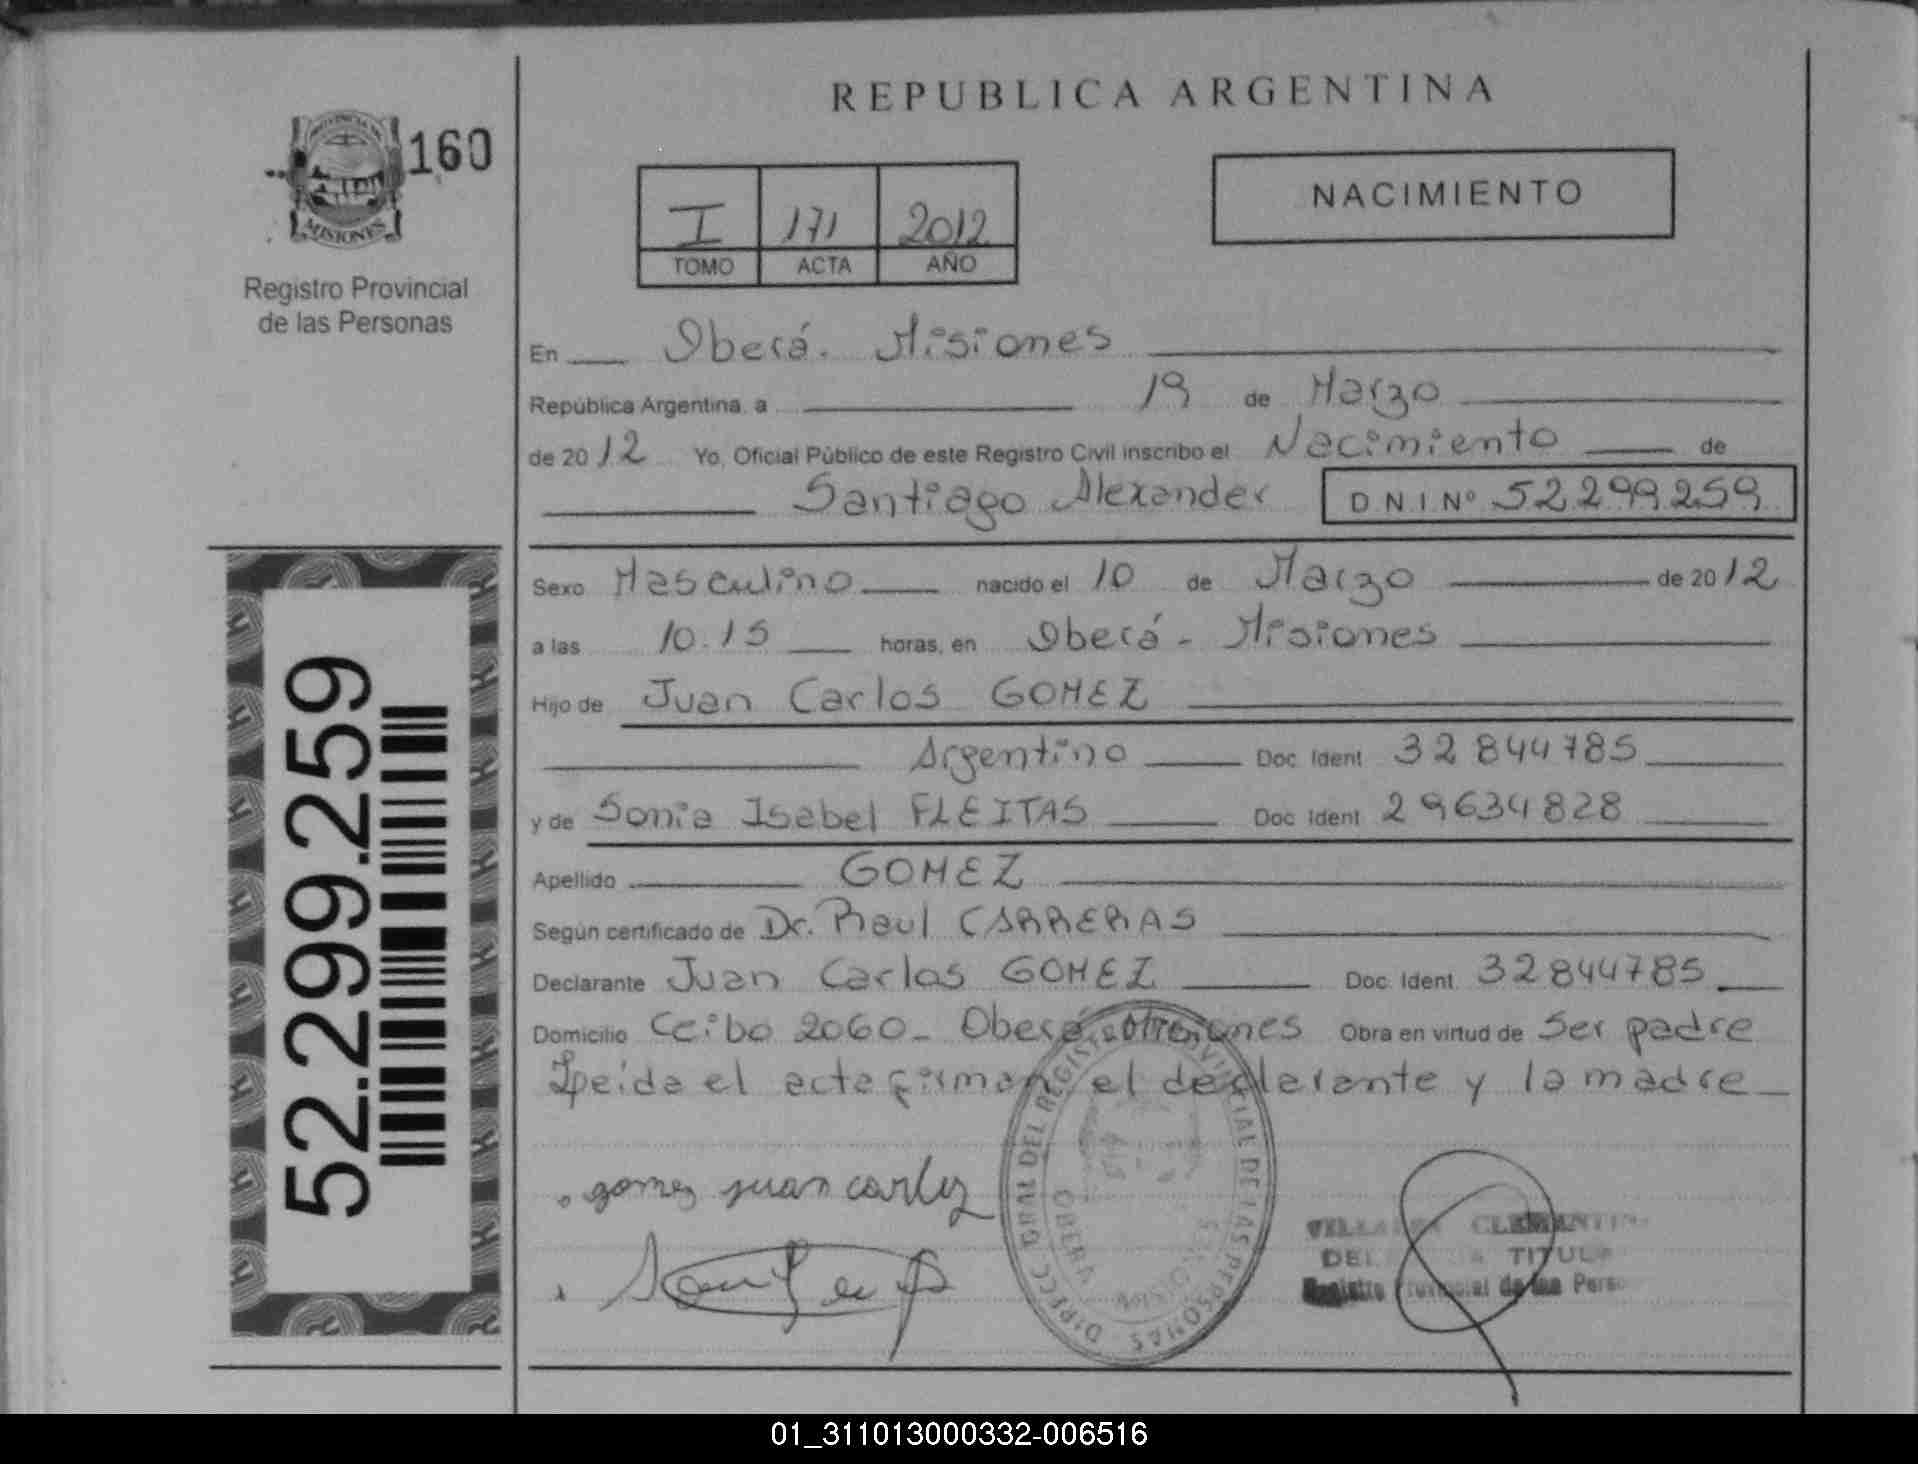 REPUBLICA ARGENTINA
160
MISIONES
Registro Provincial
de las Personas
I 171 2012
TOMO ACTA AÑO
NACIMIENTO
En Oberá. Misiones
República Argentina, a 19 de Marzo
de 2012 Yo, Oficial Público de este Registro Civil inscribo el Nacimiento de
Santiago Alexander D.N.I.Nº 52.299.259
Sexo Masculino nacido el 10 de Marzo de 2012
a las 10.15 horas, en Oberá - Misiones
Hijo de Juan Carlos GOMEZ
Argentino Doc. Ident. 32844785
y de Sonia Isabel FLEITAS Doc. Ident. 29634828
Apellido GOMEZ
Según certificado de Dr. Raul CARRERAS
Declarante Juan Carlos GOMEZ Doc. Ident. 32844785
Domicilio Ceibo 2060 - Oberá - Misiones Obra en virtud de Ser padre
Leida el acta firman el declarante y la madre
gomez juan carlos
DIRECC GRAL DEL REGISTRO PROVINCIAL DE LAS PERSONAS
OBERA MISIONES
CLEMANTIN
TITUL
Registro Provincial de las Perso
52.299.259
01_311013000332-006516